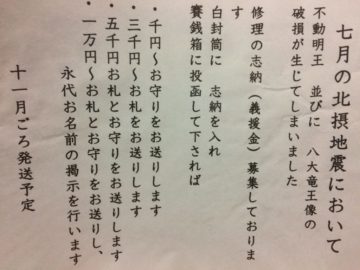 七月の北摂地震において
不動明王　並びに　八大竜王像の
破損が生じてしまいました
修理の志納（義援金）募集しておりま
す
白封筒に　志納を入れ
賽銭箱に投函して下されば
・千円～お守りをお送りします
・三千円～お札をお送りします
・五千円お札とお守りをお送りします
・一万円～お札とお守りをお送りし、
永代お名前の掲示を行います
十一月ごろ発送予定